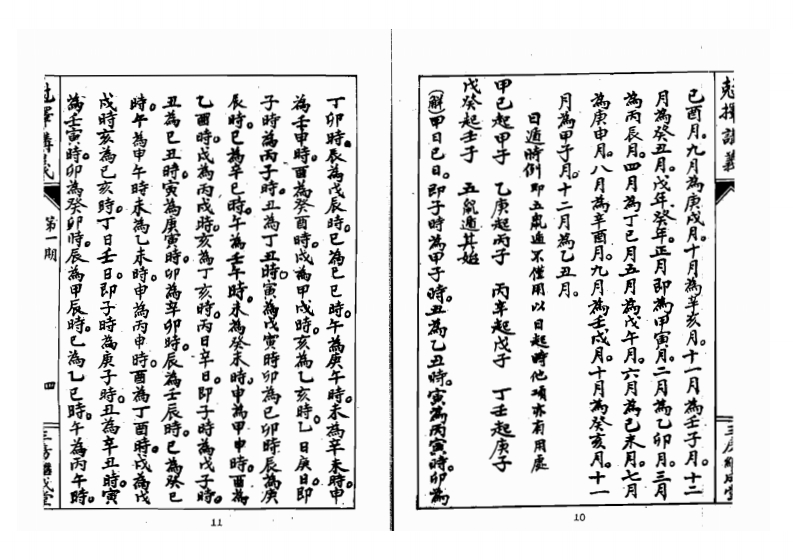 剋擇講義
己酉月。九月為庚戌月。十月為辛亥月。十一月為壬子月。十二
月為癸丑月。戊年癸年。正月即為甲寅月。二月為乙卯月。三月
為丙辰月。四月為丁巳月。五月為戊午月。六月為己未月。七月
為庚申月。八月為辛酉月。九月為壬戌月。十月為癸亥月。十一
月為甲子月。十二月為乙丑月。
日遁時例 即五鼠遁不僅用以日起時他項亦有用處
甲己起甲子 乙庚起丙子 丙辛起戊子 丁壬起庚子
戊癸起壬子 五鼠遁其始
(解)甲日己日。即子時為甲子時。丑為乙丑時。寅為丙寅時。卯為
10
丁卯時。辰為戊辰時。巳為己巳時。午為庚午時。未為辛未時。申
為壬申時。酉為癸酉時。戌為甲戌時。亥為乙亥時。乙日庚日。即
子時為丙子時。丑為丁丑時。寅為戊寅時。卯為己卯時。辰為庚
辰時。巳為辛巳時。午為壬午時。未為癸未時。申為甲申時。酉為
乙酉時。戌為丙戌時。亥為丁亥時。丙日辛日。即子時為戊子時。
丑為己丑時。寅為庚寅時。卯為辛卯時。辰為壬辰時。巳為癸巳
時。午為甲午時。未為乙未時。申為丙申時。酉為丁酉時。戌為戊
戌時。亥為己亥時。丁日壬日。即子時為庚子時。丑為辛丑時。寅
為壬寅時。卯為癸卯時。辰為甲辰時。巳為乙巳時。午為丙午時。
剋擇講義
第一期
四
11